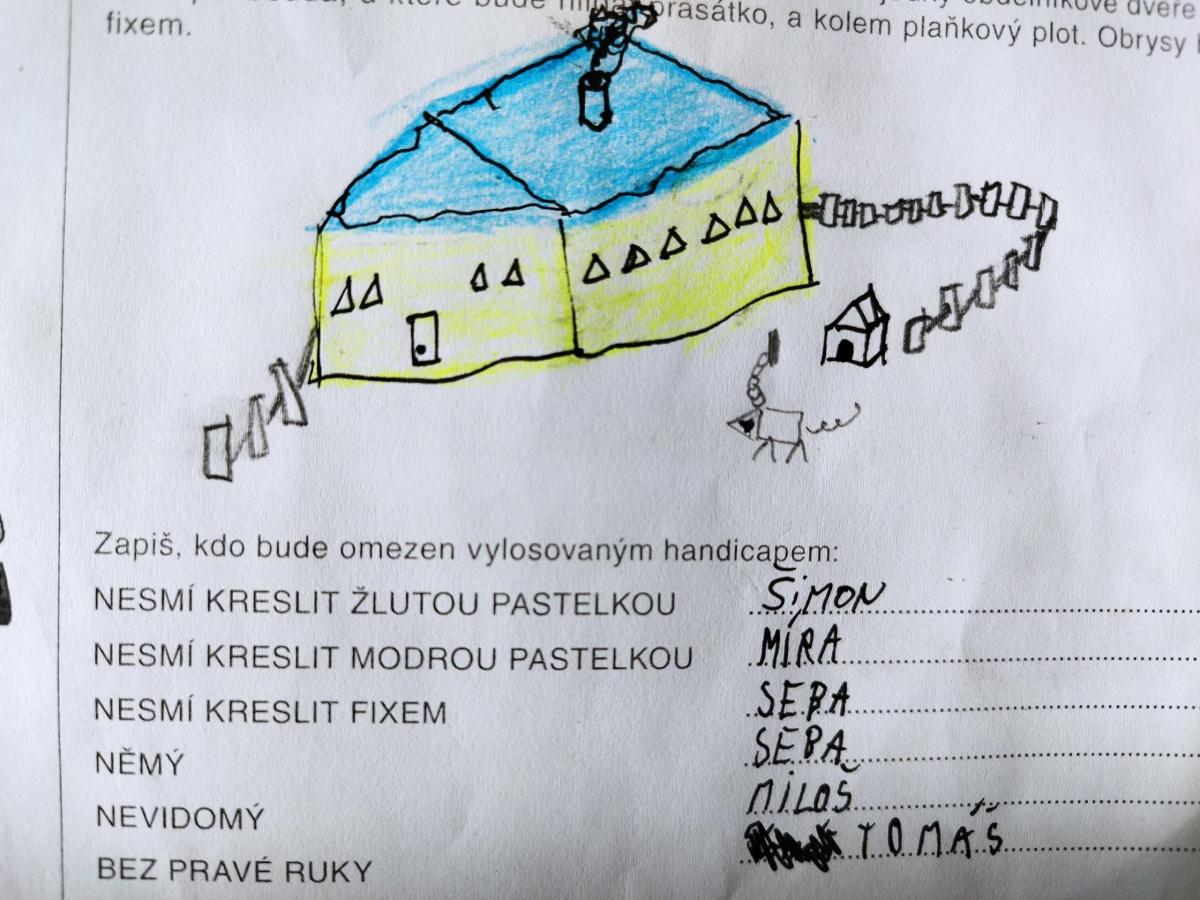 a které bude hlídat prasátko, a kolem plaňkový plot. Obrysy
obdélníkové dveře
fixem.
Zapiš, kdo bude omezen vylosovaným handicapem:
NESMÍ KRESLIT ŽLUTOU PASTELKOU ŠiMON
NESMÍ KRESLIT MODROU PASTELKOU MÍRA
NESMÍ KRESLIT FIXEM SEBA
NĚMÝ SEBA
NEVIDOMÝ MiLOŠ
BEZ PRAVÉ RUKY TOMÁŠ